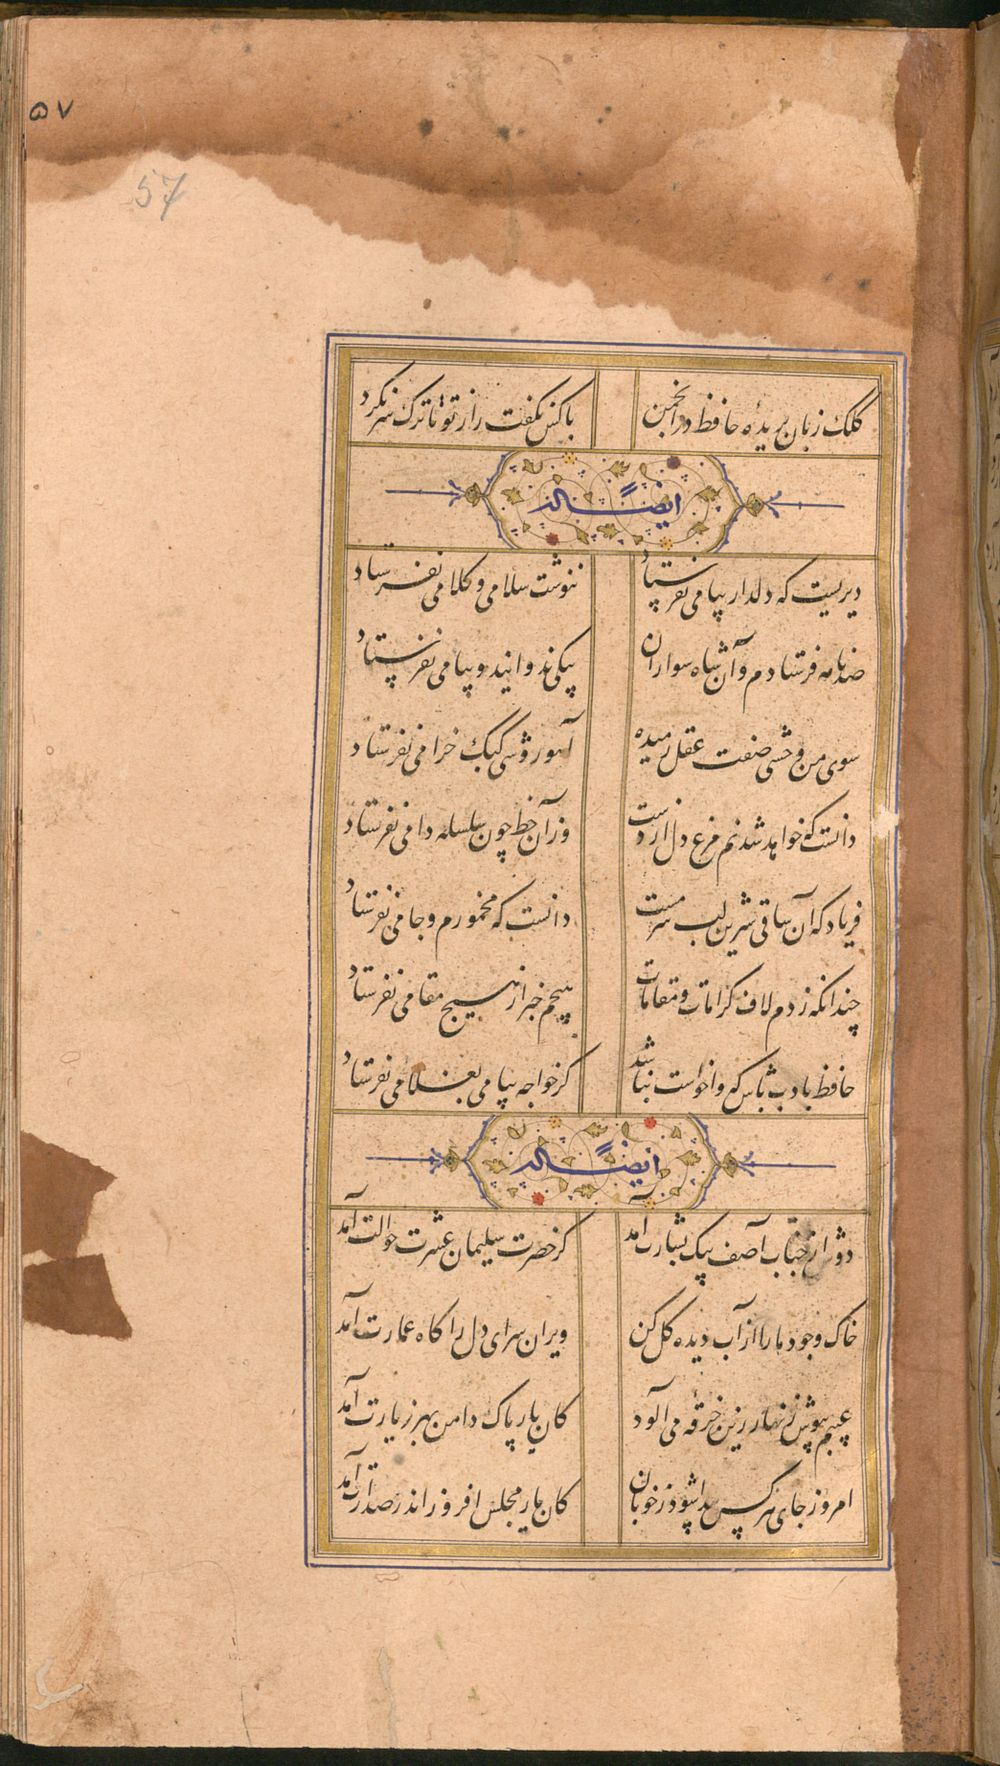 ۵۷
57
کلک زبان بریدهٔ حافظ در انجمن با کس نگفت راز تو تا ترک سر نکرد
ایضاً له
دیریست که دلدار پیامی نفرستاد ننوشت سلامی و کلامی نفرستاد
صد نامه فرستادم و آن شاه سواران پیکی ندوانید و پیامی نفرستاد
سوی من وحشی صفت عقل رمیده آهوروشی کبک خرامی نفرستاد
دانست که خواهد شدنم مرغ دل از دست وزآن خط چون سلسله دامی نفرستاد
فریاد که آن ساقی شیرین لب سرمست دانست که مخمورم و جامی نفرستاد
چندانکه زدم لاف کرامات و مقامات هیچم خبر از هیچ مقامی نفرستاد
حافظ بادب باش که واخواست نباشد کز خواجه پیامی بغلامی نفرستاد
ایضاً له
دوش از جناب آصف پیک بشارت آمد کز حضرت سلیمان عشرت حوالت آمد
خاک وجود ما را از آب دیده گل کن ویران سرای دل را گاه عمارت آمد
عیبم بپوش زنهار زین خرقه می آلود کان یار پاک دامن بهر زیارت آمد
امروز جای هر کس پیدا شود ز خوبان کان یار مجلس افروز اندر صدارت آمد